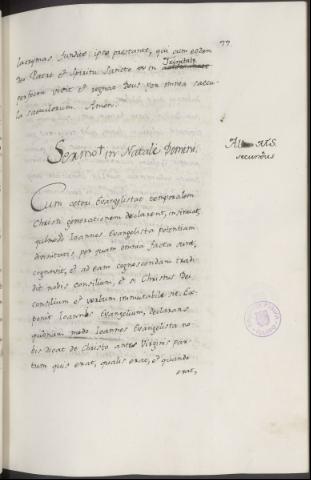 77
lacrymas fundit: ipso prestante, qui cum eodem
Deo Patre et Spiritu Sancto in Trinitate
perfecta vivit et regnat Deus per omnia saecu-
la saeculorum. Amen.
Sermo in Natale Domini.
secundus
Cum ceteri Evangelistae temporalem
Christi generationem declarent,
Ioannes Evangelista potentiam
divinitatis, per quam omnia facta sunt,
cognovit, et ad eam cognoscendam tradi-
dit nobis consilium, et si Christus Dei
consilium et verbum immutabile sit.
Ioannes Evangelium, declarans
quonam modo Ioannes Evangelista no-
bis dicat de Christo ante Virginis par-
tum quis erat, qualis erat, et quando
erat,